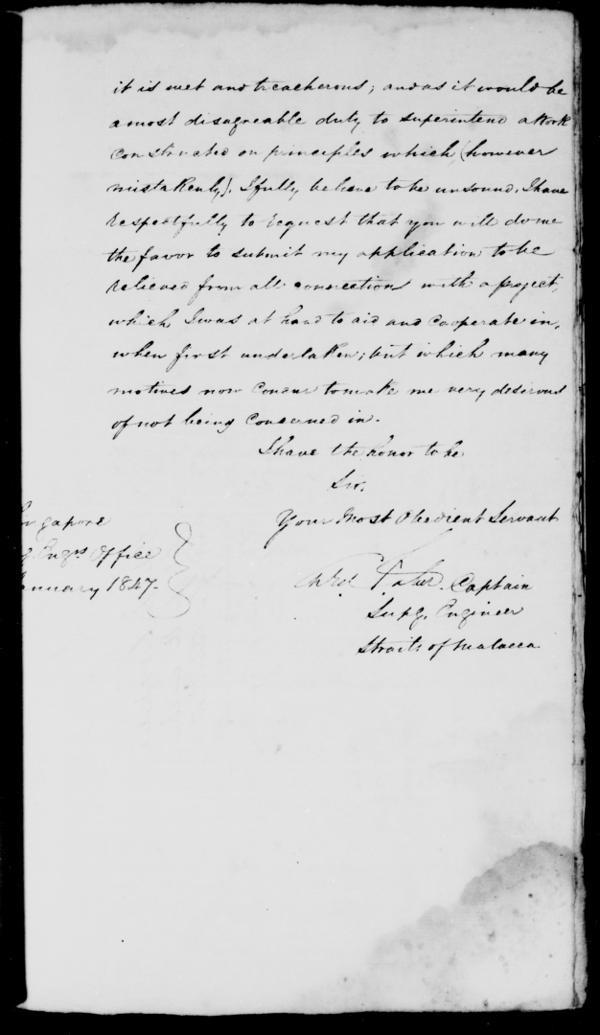 it is wet and treacherous; and as it would be
a most disagreable duty to superintend a Work
Constructed on principles which (however
mistakenly). I fully believe to be unsound. I have
respectfully to request that you will do me
the favor to submit my application to be
relieved from all connections with a project,
which I was at hand to aid and cooperate in,
when first undertaken; but which many
motives now concur to make me very desirous
of not being concerned in.
I have the honor to be
Sir,
Your Most Obedient Servant
Captain
Supg. Engineer
Straits of Malacca
gapore
g. Engrs Office
nuary 1847.